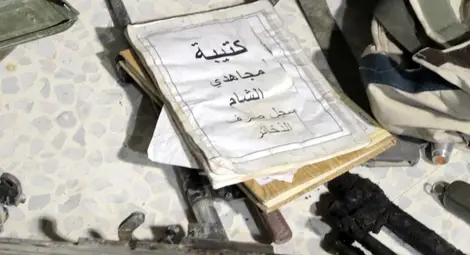 كتيبة
مجاهدي
الشام
سجل صرف
الذخائر